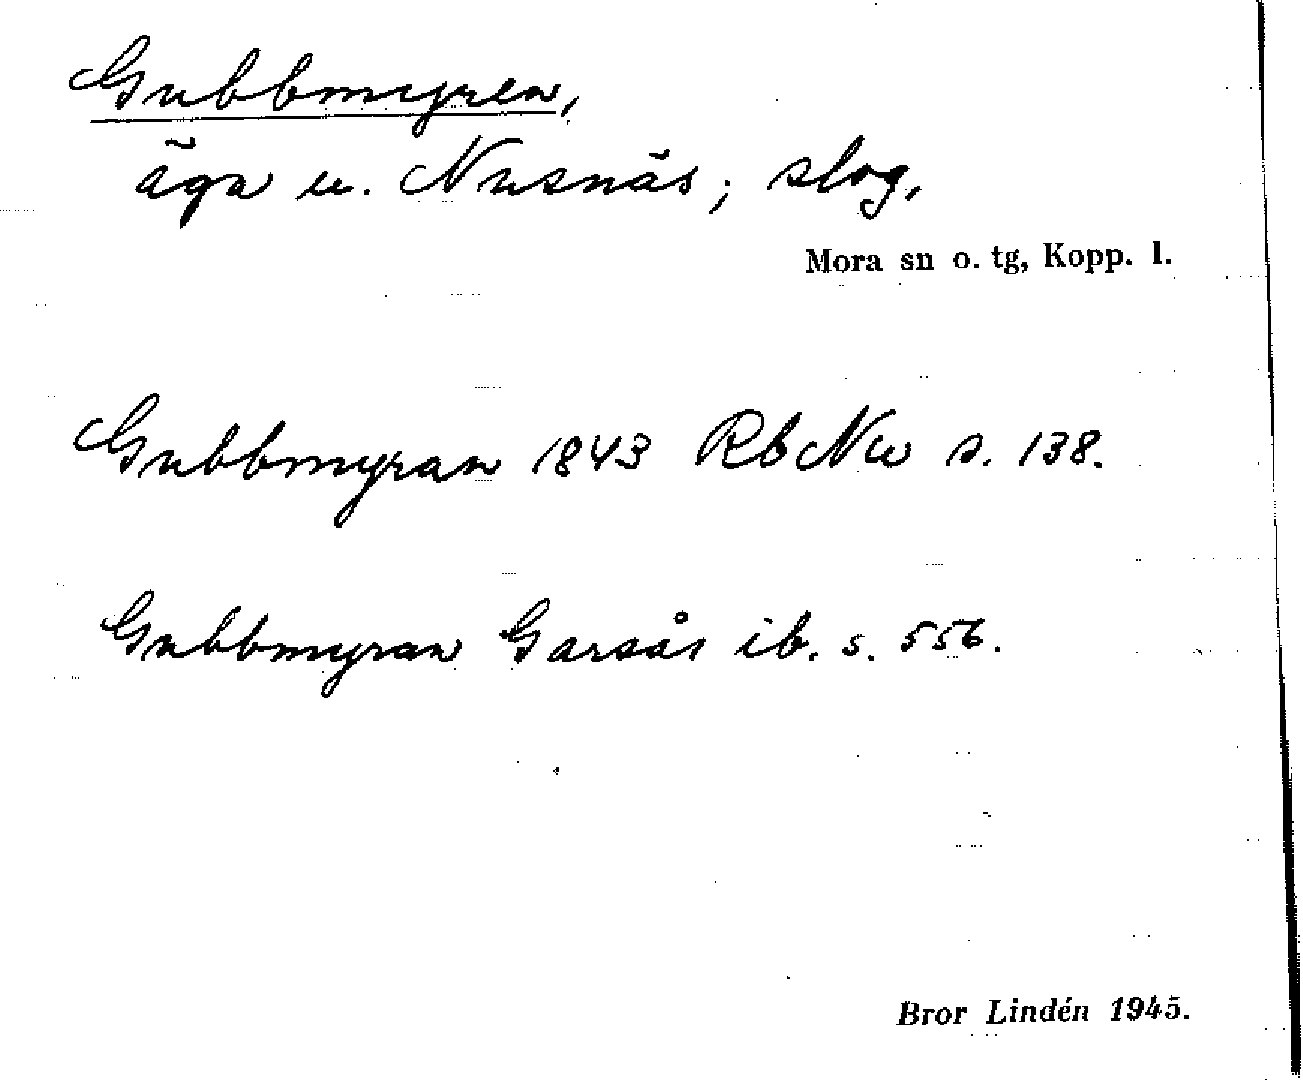 Gubbmyren,
äga u. Nusnäs; slog,
Mora sn o. tg, Kopp. l.
Gubbmyran 1843 RbNu s. 138.
Gubbmyran Garsås ib. s. 556.
Bror Lindén 1945.